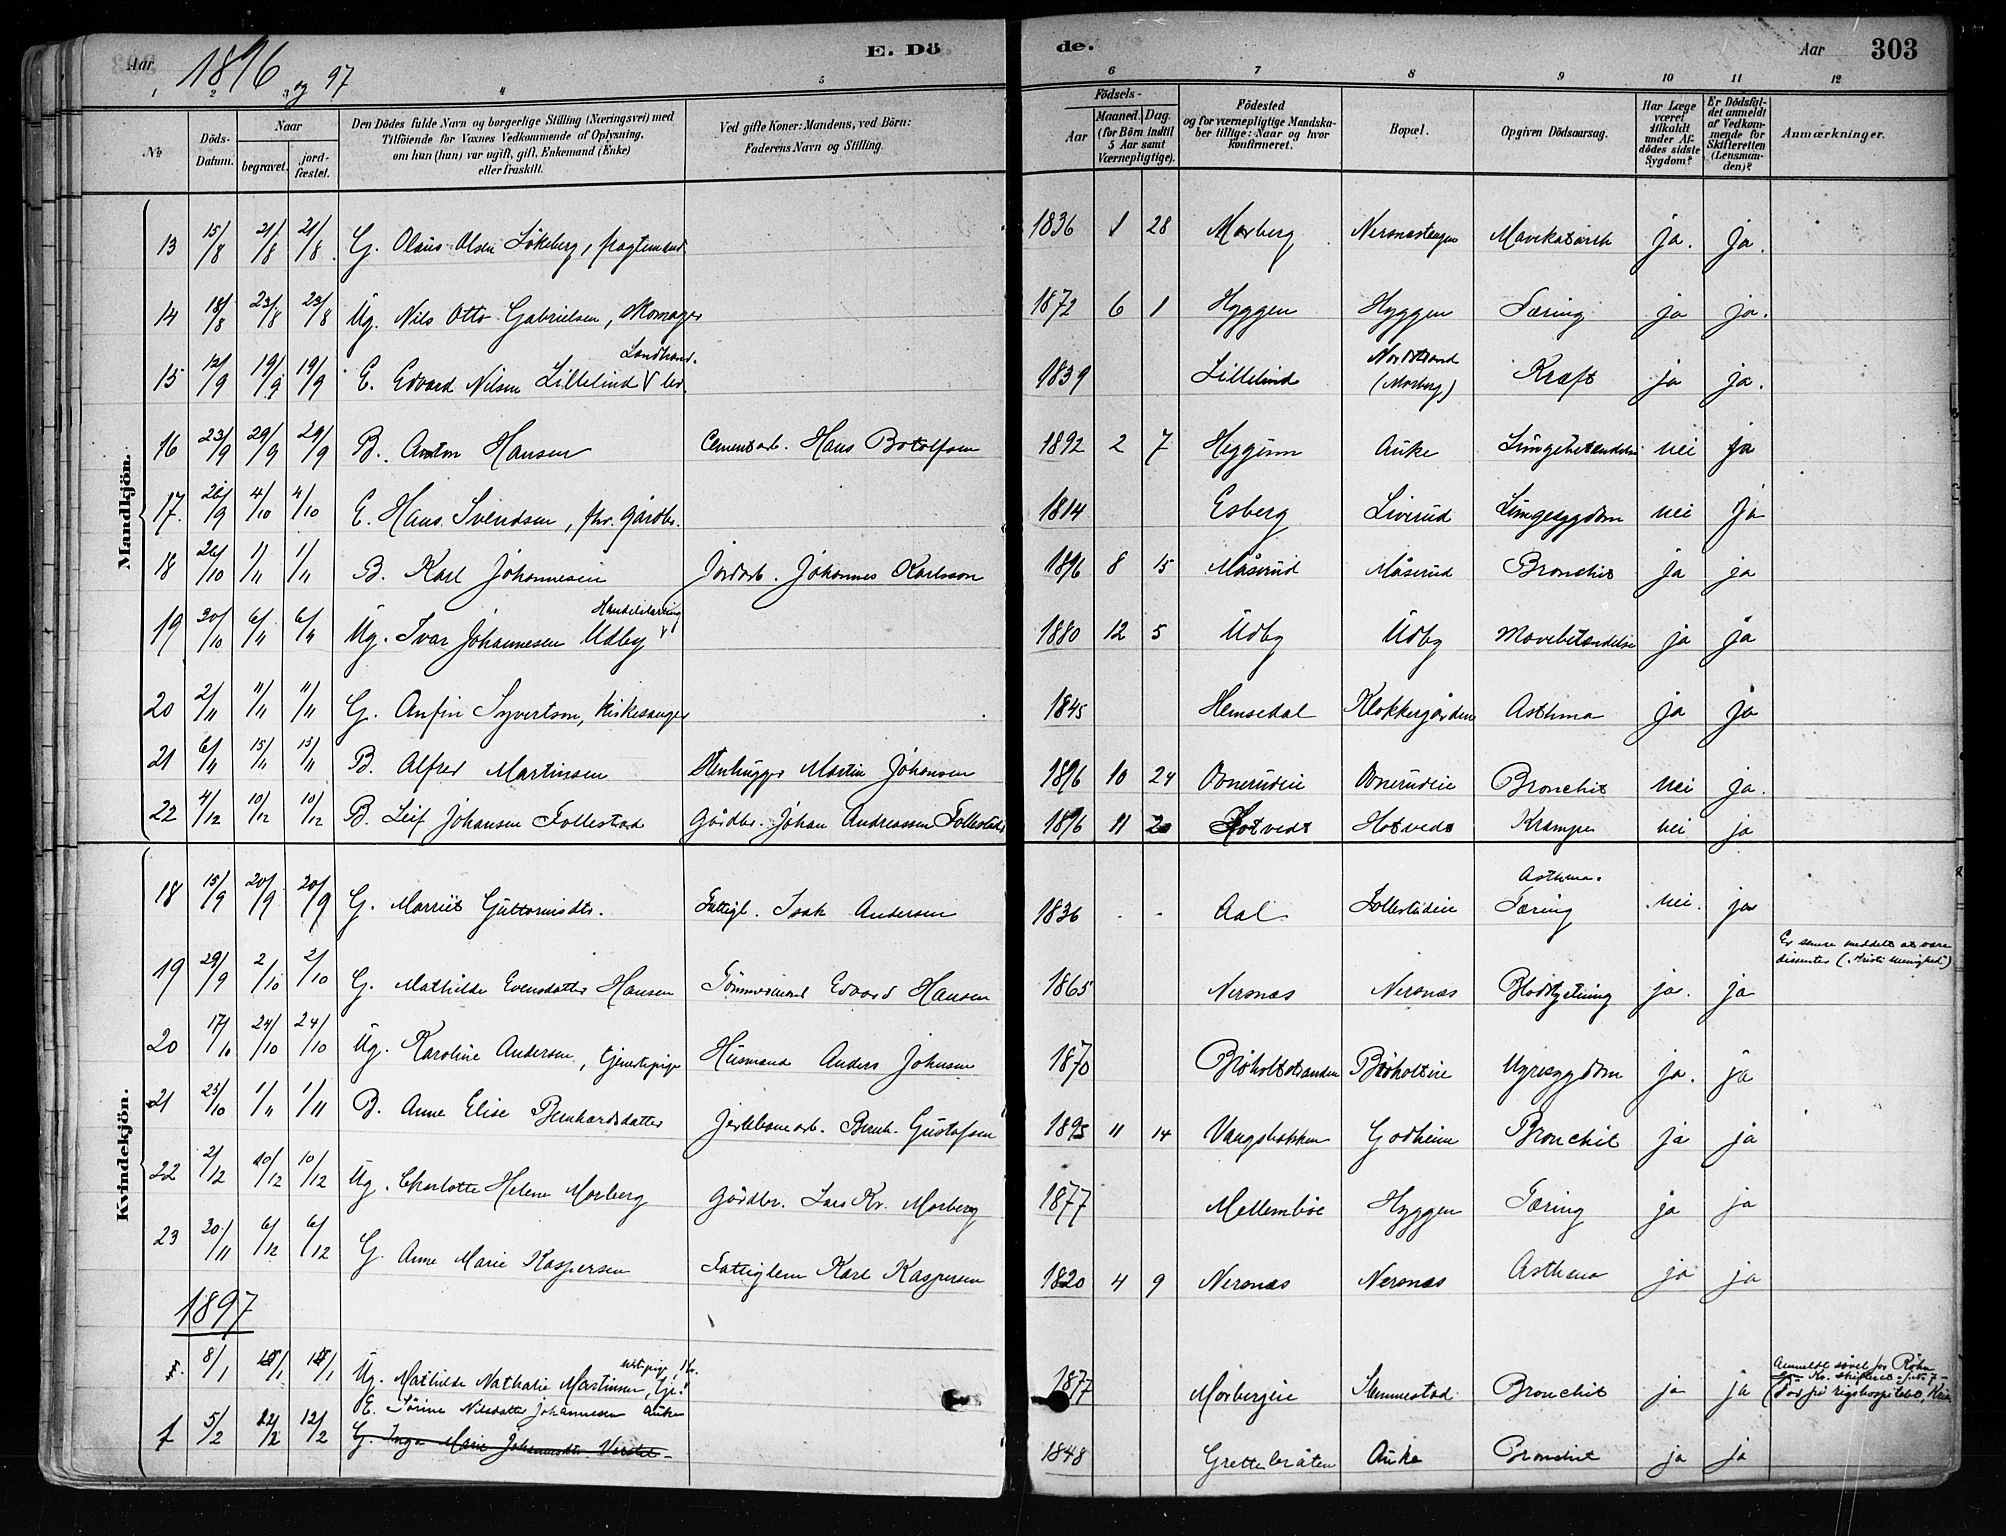 Aar 1896 og 97 E. Dö de. Aar 303
1 2 3 4 5 6 7 8 9 10 11 12
№
Döds-Datum.
Naar begravet. jord-fæstet.
Den Dödes fulde Navn og borgerlige Stilling (Næringsvei) med Tilföiende for Voxnes Vedkommende af Oplysning, om hun (han) var ugift, gift, Enkemand (Enke) eller fraskilt.
Ved gifte Koner: Mandens, ved Börn: Faderens Navn og Stilling.
Födsels- Aar Maaned. Dag. (for Börn indtil 5 Aar samt Værnepligtige).
Födested og for værnepligtige Mandskaber tillige: Naar og hvor konfirmeret.
Bopæl.
Opgiven Dödsaarsag.
Har Læge været tilkaldt under Afdödes sidste Sygdom?
Er Dödsfaldet anmeldt af Vedkommende for Skifteretten (Lensmanden)?
Anmærkninger.
Mandkjön.
13 15/8 21/8 21/8 G. Olaus Olsen Lökeberg, fragtemand. 1836 1 28 Morberg Nersnæstangen Mavekatarrh ja. ja.
14 18/8 23/8 23/8 Ug. Nils Otto Gabrielsen, skomager 1872 6 1 Hyggen Hyggen Tæring ja ja.
15 12/9 19/9 19/9 E. Edvard Nilsen Lillelind Landhand-ler. 1839 Lillelind Nordstrand (Morberg) Kræft ja ja.
16 23/9 29/9 29/9 B. Anton Hansen Cementarb. Hans Botolfsen 1892 2 7 Heggum Auke Lungebetændelse nei ja
17. 26/9 4/10 4/10 E. Hans Svendsen, fhv. gårdbr. 1814 Esberg Liverud Lungesygdom nei ja
18 26/10 1/11 1/11 B. Karl Johannesen Jordarb. Johannes Karlsson 1896 8 15 Måserud Måserud Bronchit ja ja
19 30/10 6/11 6/11 Ug. Ivar Johannesen Udby Handelslærling 1880 12 5 Udby Udby Mavebetændelse ja ja
20 2/11 11/11 11/11 G. Anfin Syvertsen, kirkesanger 1845 Hemsedal Klokkergården Asthma ja ja
21 6/11 15/11 15/11 B. Alfred Martinsen Stenhugger Martin Johansen 1896 10 24 Ovnerudeie Ovnerudeie Bronchit nei ja.
22 4/12 10/12 10/12 B. Leif Johansen Follestad Gårdbr. Johan Andreassen Follestad 1896 11 20 Hotvedt Hotvedt Krampe nei ja
Kvindekjön.
18 15/9 20/9 20/9 G. Marrit Guttormsdtr. Fattigl. Isak Andersen 1836 - - Aal Follestadeie Asthma. Tæring nei. ja
19 29/9 2/10 2/10 G. Mathilde Evensdatter Hansen Tømmermand Edvard Hansen 1865 Nersnæs Nersnæs Blodstyrtning ja. ja Er senere meddelt at være dissenter ("Kristi menighed")
20 17/10 24/10 24/10 Ug. Karoline Andersen, tjenestepige Husmand Anders Johnsen 1870 Bråholtstranden Bråholteie Nyresygdom ja. ja
21 25/10 1/11 1/11 B. Anne Elise Bernhardsdatter Jernbanearb. Bernh. Gustafsen 1895 11 14 Vangsbakken Godheim Bronchit ja ja
22 2/12 10/12 10/12 Ug. Charlotte Helene Morberg Gårdbr. Lars Kr. Morberg 1877 Mellembøe Hyggen Tæring ja ja
23 30/11 6/12 6/12 G. Anne Marie Kaspersen Fattiglem Karl Kaspersen 1820 4 9 Nersnæs Nersnæs Asthma ja ja
1897
8/1 Ug. Mathilde Nathalie Martinsen 1877 Morbergeie Slemmestad Bronchit ja ja Anmeldt såvel for Røken
(Død på rigshospitalet, Kria.
1 5/2 12/2 12/2 E. Sörine Nilsdatter Johannesen Auke 1848 Grettebråten Auke Bronchit ja ja
G. Inga Marie Johannesdtr.